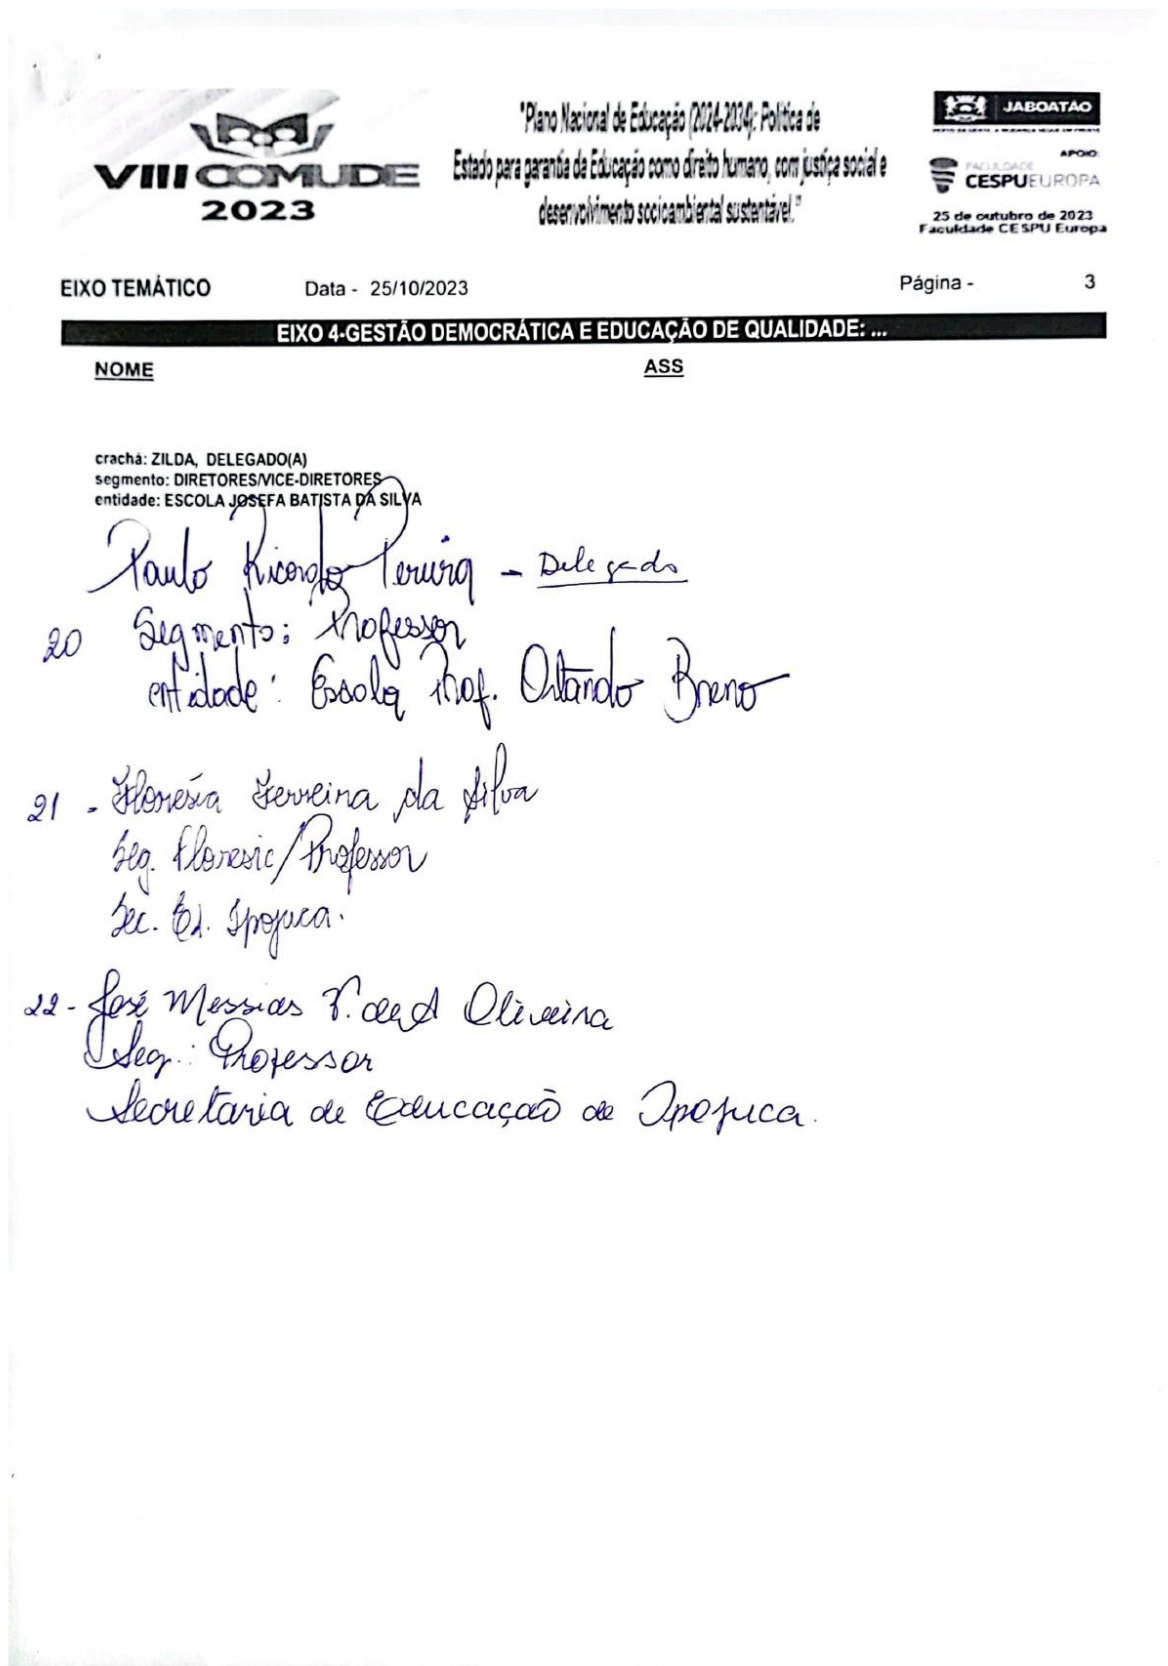 VIII COMUDE
2023
"Plano Nacional de Educação (2024-2034): Política de
Estado para garantia da Educação como direito humano, com justiça social e
desenvolvimento socioambiental sustentável."
JABOATÃO
APOIO:
FACULDADE
CESPU EUROPA
25 de outubro de 2023
Faculdade CESPU Europa
EIXO TEMÁTICO Data - 25/10/2023 Página - 3
EIXO 4-GESTÃO DEMOCRÁTICA E EDUCAÇÃO DE QUALIDADE: ...
NOME ASS
crachá: ZILDA, DELEGADO(A)
segmento: DIRETORES/VICE-DIRETORES
entidade: ESCOLA JOSEFA BATISTA DA SILVA
Paulo Ricardo Pereira - Delegado
20 Segmento: Professor
entidade: Escola Prof. Orlando Breno
21 - Floresia Ferreira da Silva
Seg. Floresic/Professor
Sec. Ed. Ipojuca.
22 - José Messias V. de A Oliveira
Seg.: Professor
Secretaria de Educação de Ipojuca.